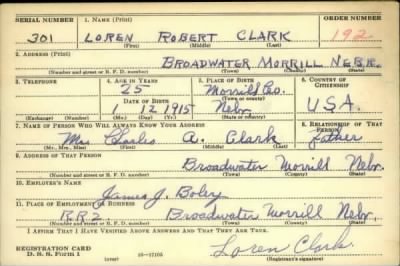 SERIAL NUMBER 1. NAME (Print) ORDER NUMBER
301 LOREN ROBERT CLARK 192
(First) (Middle) (Last)
2. ADDRESS (Print)
BROADWATER MORRILL NEBR.
(Number and street or R. F. D. number) (Town) (County) (State)
3. TELEPHONE 4. AGE IN YEARS 5. PLACE OF BIRTH 6. COUNTRY OF CITIZENSHIP
25 Morrill Co.
DATE OF BIRTH (Town or county)
12 1915 Nebr. U.S.A.
(Exchange) (Number) (Mo.) (Day) (Yr.) (State or country)
7. NAME OF PERSON WHO WILL ALWAYS KNOW YOUR ADDRESS 8. RELATIONSHIP OF THAT PERSON
Mr. Charles A. Clark Father
(Mr., Mrs., Miss) (First) (Middle) (Last)
9. ADDRESS OF THAT PERSON
Broadwater Morrill Nebr.
(Number and street or R. F. D. number) (Town) (County) (State)
10. EMPLOYER'S NAME
James J.
11. PLACE OF EMPLOYMENT OR BUSINESS
R.R.2. Broadwater Morrill Nebr.
(Number and street or R. F. D. number) (Town) (County) (State)
I AFFIRM THAT I HAVE VERIFIED ABOVE ANSWERS AND THAT THEY ARE TRUE.
REGISTRATION CARD Loren Clark
D. S. S. Form 1 (over) 16-17105 (Registrant's signature)